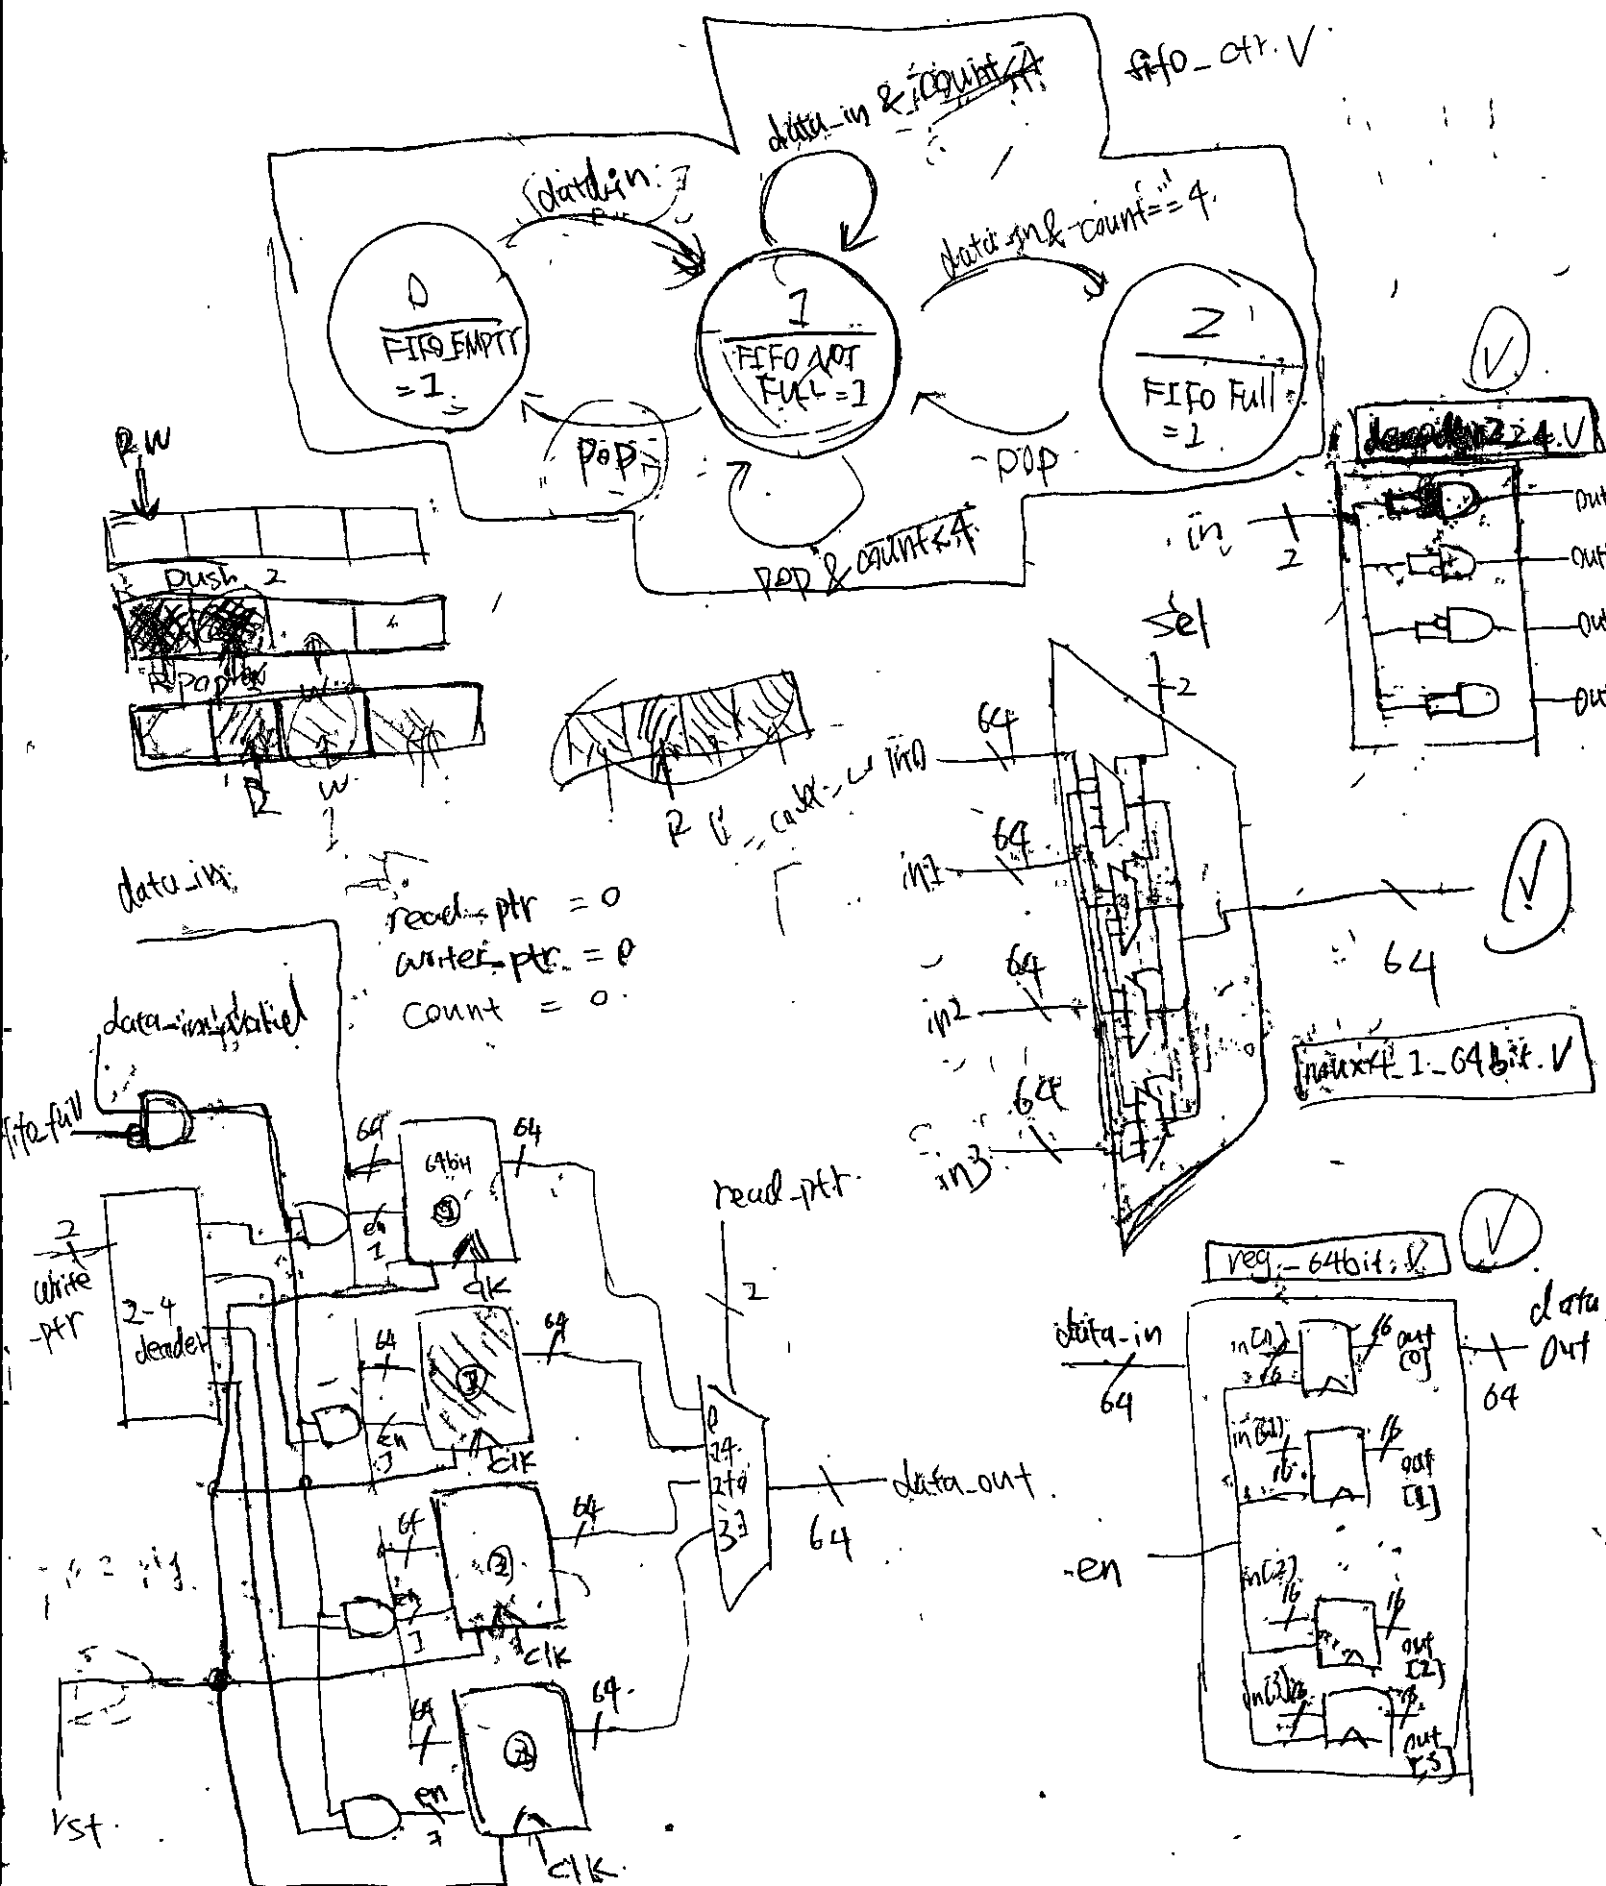 fifo_ctr.V
data_in & count<4
data_in
data_in & count==4
0
FIFO_EMPTY
=1
1
FIFO NOT
FULL=1
2
FIFO Full
=1
pop
pop
pop & count<4
R W
push 2
R pop 1
W
R
W
R
V
in
2
out
out
out
out
sel
2
in0
64
in1
64
in2
64
in3
64
64
V
mux4_1_64bit.V
data_in
read_ptr = 0
writer_ptr = 0
count = 0
data_in_valid
fifo_full
2
write
_ptr
2-4
decoder
64
64bit
64
en
1
clk
64
64
en
1
clk
64
64
2
en
1
clk
64
64
en
clk
rst
read_ptr
2
0
1
2
3
64
data_out
reg_64bit.V
V
data_in
64
en
in[0]
16
16
out
[0]
in[1]
16
16
out
[1]
in[2]
16
16
out
[2]
in[3]
16
out
[3]
data
out
64